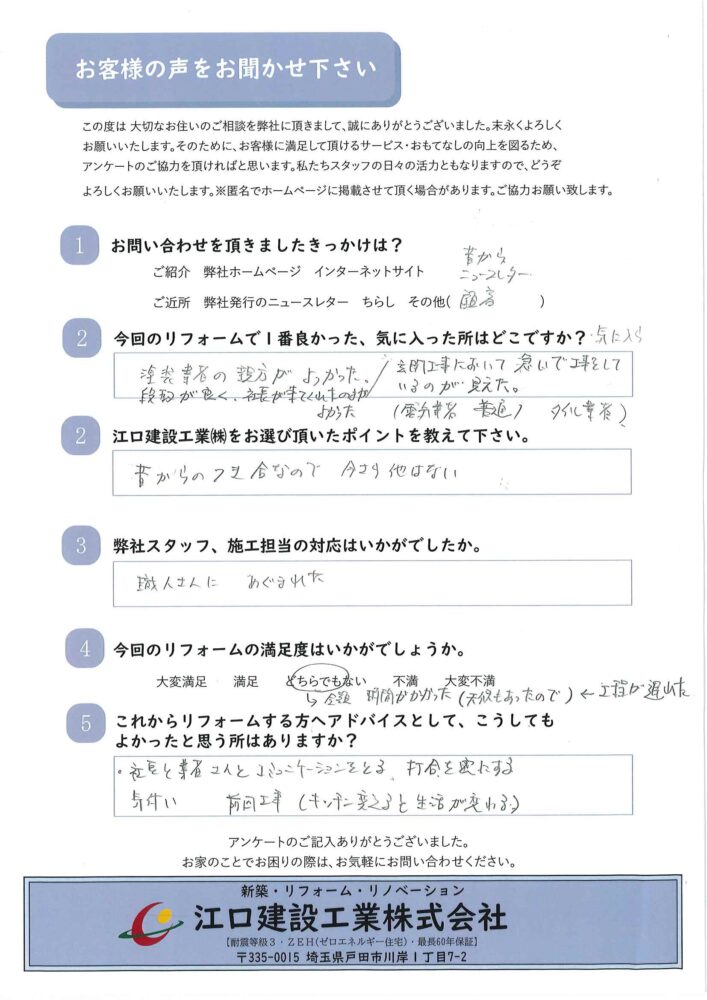 お客様の声をお聞かせ下さい
この度は 大切なお住いのご相談を弊社に頂きまして、誠にありがとうございました。末永くよろしく
お願いいたします。そのために、お客様に満足して頂けるサービス・おもてなしの向上を図るため、
アンケートのご協力を頂ければと思います。私たちスタッフの日々の活力ともなりますので、どうぞ
よろしくお願いいたします。※匿名でホームページに掲載させて頂く場合があります。ご協力お願い致します。
1 お問い合わせを頂きましたきっかけは？
昔から
ご紹介 弊社ホームページ インターネットサイト ニュースレター
ご近所 弊社発行のニュースレター ちらし その他( 顧客 )
2 今回のリフォームで1番良かった、気に入った所はどこですか？ 気に入ら
塗装業者の親方がよかった。/ 玄関工事において 急いで工事をして
段取が良く、社長が来てくれたのが いるのが見えた。
よかった (電気業者 普通) タイル業者)
2 江口建設工業㈱をお選び頂いたポイントを教えて下さい。
昔からのつき合なので 今さら他はない
3 弊社スタッフ、施工担当の対応はいかがでしたか。
職人さんに めぐまれた
4 今回のリフォームの満足度はいかがでしょうか。
大変満足 満足 どちらでもない 不満 大変不満
↳ 時間がかかった (天候もあったので) ← 工程が遅れた
5 これからリフォームする方へアドバイスとして、こうしても
よかったと思う所はありますか？
・社長と業者さんとコミュニケーションをとる、打合を密にする
気使い 前回工事 (キッチン変えると生活が変わる)
アンケートのご記入ありがとうございました。
お家のことでお困りの際は、お気軽にお問い合わせください。
新築・リフォーム・リノベーション
江口建設工業株式会社
【耐震等級3・ZEH(ゼロエネルギー住宅)・最長60年保証】
〒335-0015 埼玉県戸田市川岸1丁目7-2